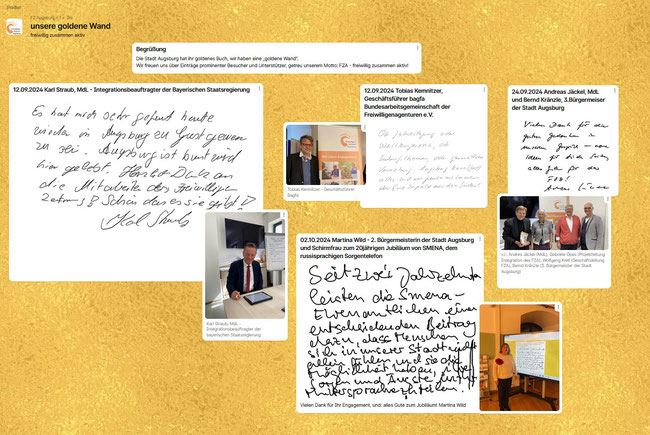 unsere goldene Wand
freiwillig zusammen aktiv
Begrüßung
Die Stadt Augsburg hat ihr goldenes Buch, wir haben eine „goldene Wand“.
Wir freuen uns über Einträge prominenter Besucher und Unterstützer, getreu unserem Motto: FZA - freiwillig zusammen aktiv!
12.09.2024 Karl Straub, MdL - Integrationsbeauftragter der Bayerischen Staatsregierung
Es hat mich sehr gefreut heute
wieder in Augsburg zu Gast gewesen
zu sein. Augsburg ist bunt und
hier gelebt. Herzl. Dank an
die Mitarbeiter des Freiwilligen
Zentrums Schön dass es sie gibt
Karl Straub
Karl Straub, MdL -
Integrationsbeauftragter der
bayerischen Staatsregierung
12.09.2024 Tobias Kemnitzer,
Geschäftsführer bagfa
Bundesarbeitsgemeinschaft der
Freiwilligenagenturen e.V.
Tobias Kemnitzer - Geschäftsführer
Bagfa
24.09.2024 Andreas Jäckel, MdL
und Bernd Kränzle, 3.Bürgermeiser
der Stadt Augsburg
Vielen Dank für die
guten Gedanken in
Ideen für
alles Gute für das
FZA!
v.l.: Andreas Jäckel (MdL), Gabriele Opas (Projektleitung
Integration des FZA), Wolfgang Krell (Geschäftsleitung
FZA), Bernd Kränzle (3. Bürgermeister der Stadt
Augsburg)
02.10.2024 Martina Wild - 2. Bürgermeisterin der Stadt Augsburg
und Schirmfrau zum 20jährigen Jubiläum von SMENA, dem
russischsprachigen Sorgentelefon
Seit zwei Jahrzehnten
leisten die Smena-
Ehrenamtlichen einen
entscheidenden Beitrag
dazu, dass Menschen
sich in unserer Stadt nicht
allein fühlen und sie die
Möglichkeit haben, ihre
Sorgen und Ängste in ihrer
Muttersprache zu teilen.
Vielen Dank für Ihr Engagement, und: alles Gute zum Jubiläum! Martina Wild